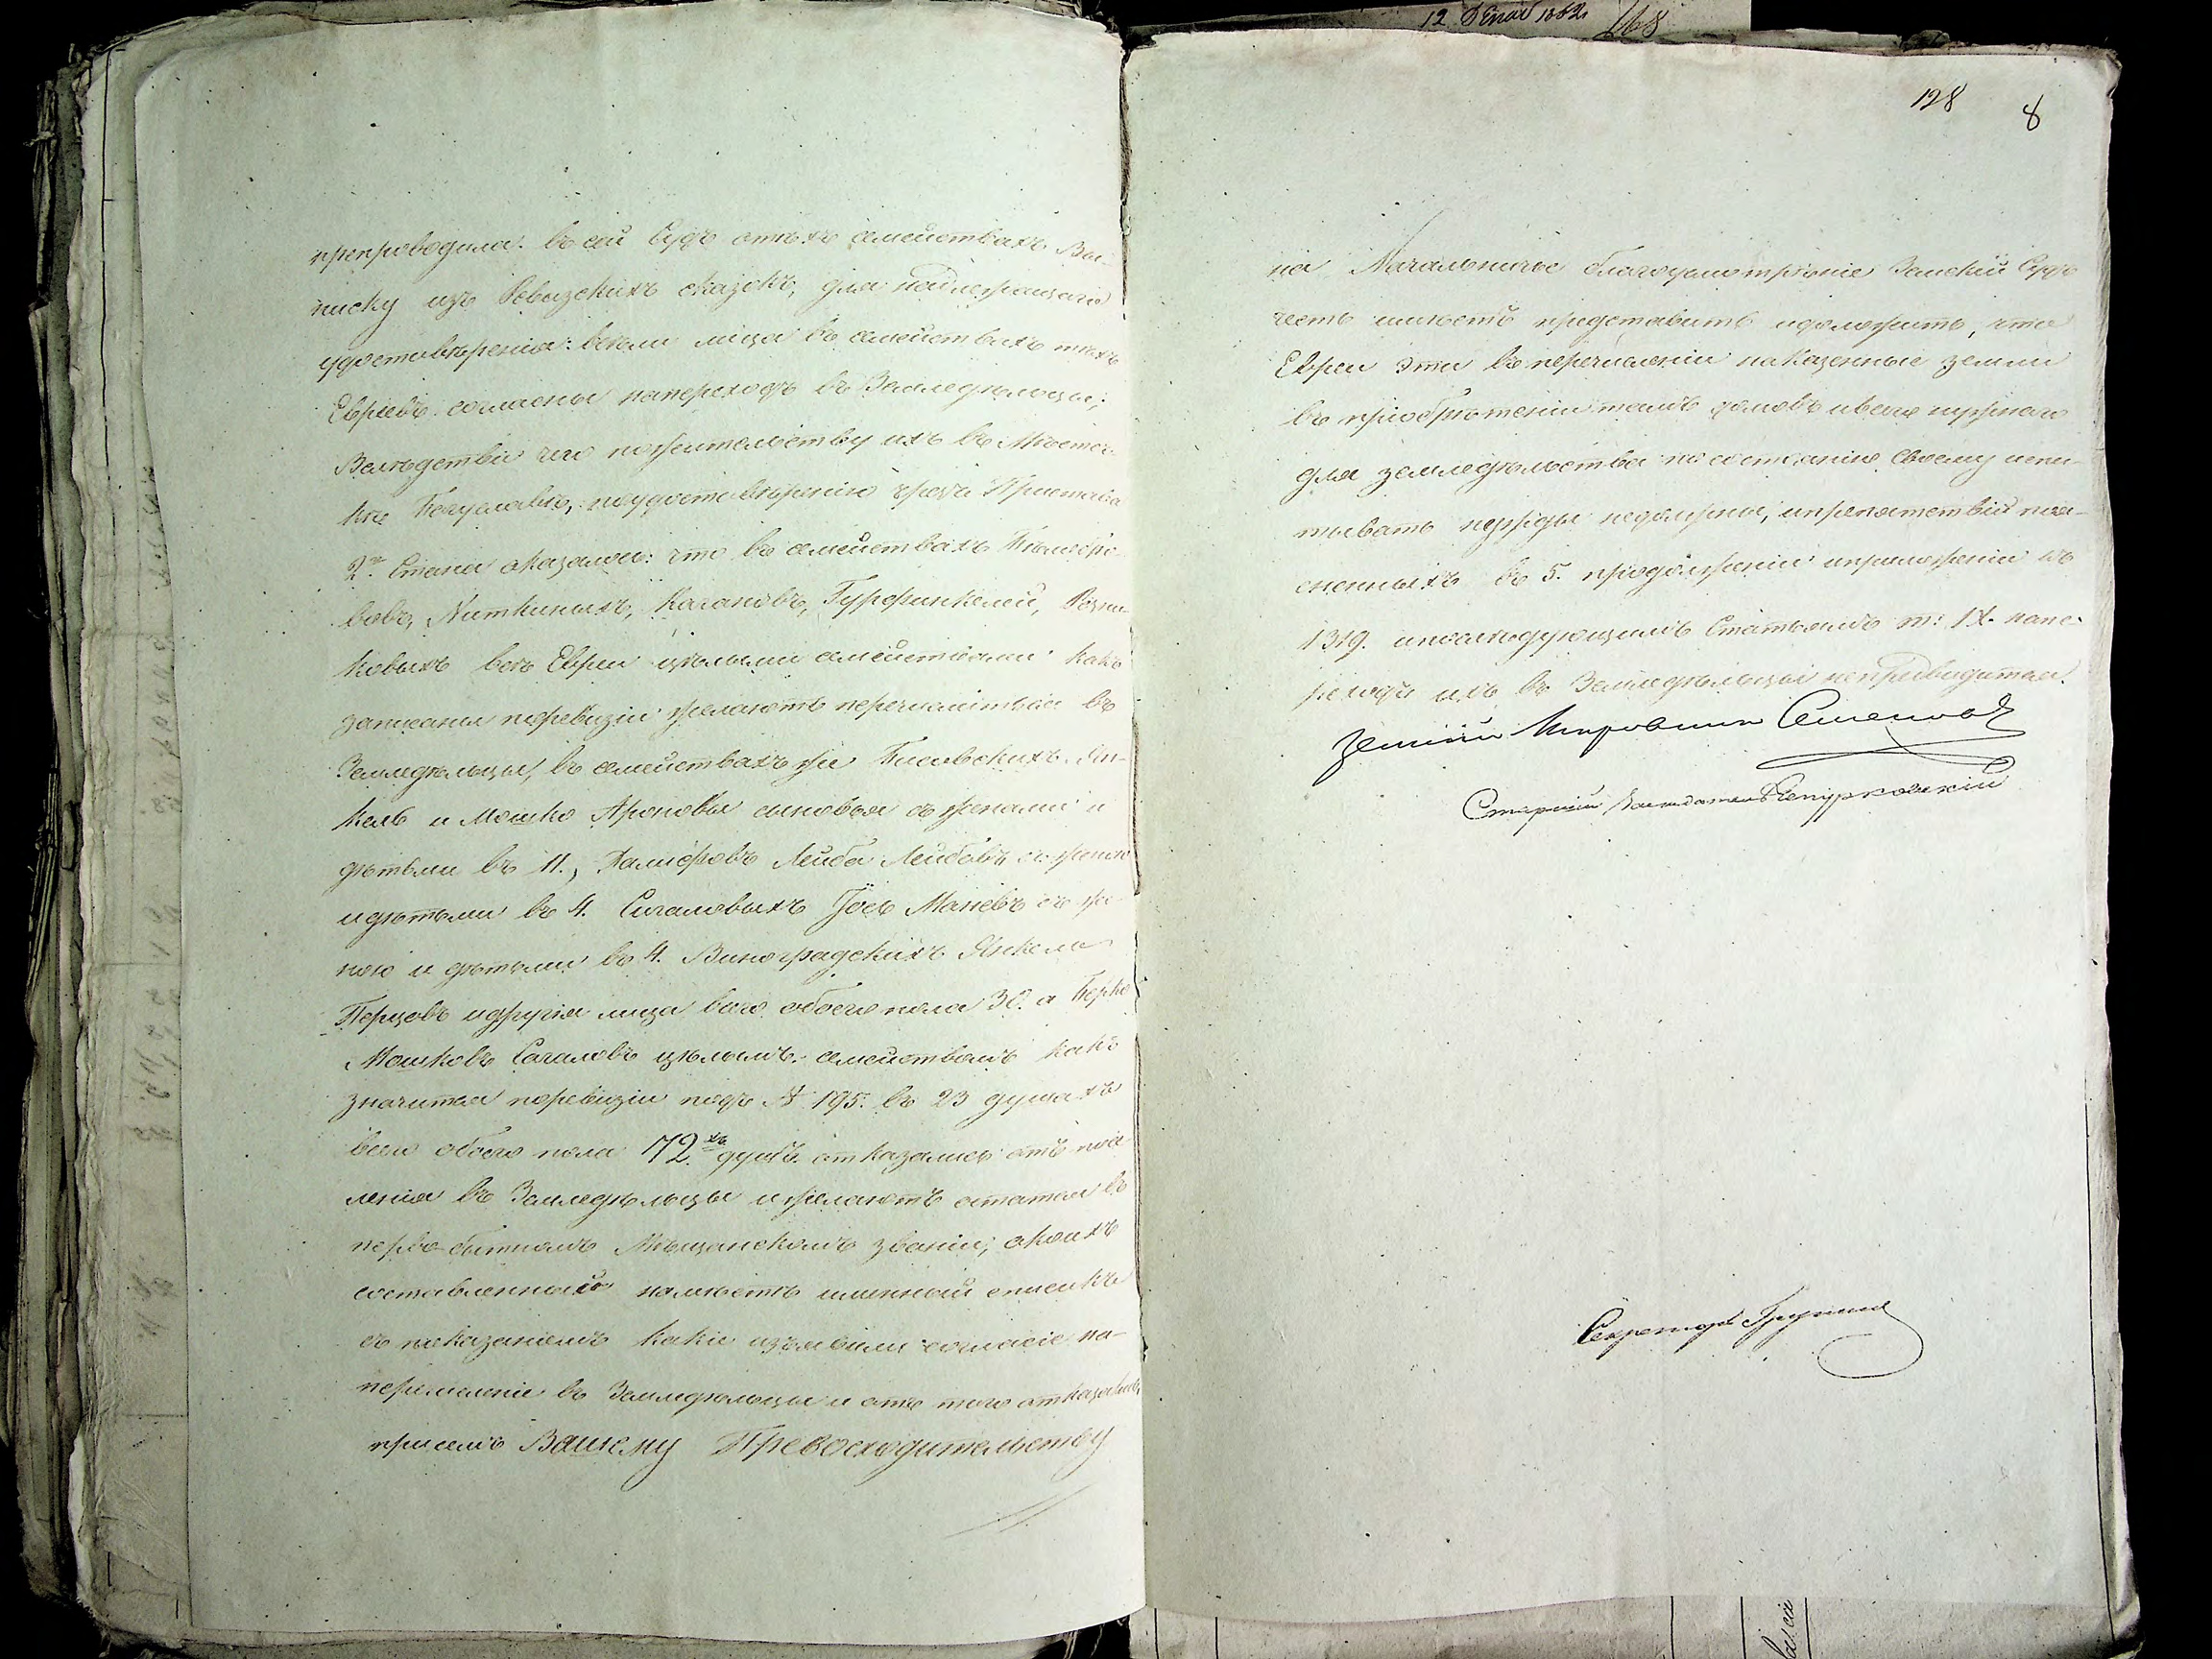 12 1852 168
препроводила въ сей Судъ о тѣхъ семействахъ Вы-
писку изъ Ревизскихъ сказокъ, для надлежащаго
удостовѣренія: всѣ ли лица въ семействахъ тѣхъ
Евреевъ согласны на переходъ въ Земледѣльцы;
Вслѣдствіи чего по жительству ихъ въ Мѣстеч-
кѣ Богуславѣ, по удостовѣренію чрезъ Пристава
2го Стана оказалось: что въ семействахъ
Ниткиныхъ, Кагановъ, Гурфинкелей, Розни-
ковыхъ всѣ Евреи цѣлыми семействами какъ
записаны по ревизіи желаютъ перечислиться въ
Земледѣльцы, въ семействахъ же Ян-
кель и Мошко Ароновы сыновья съ женами и
дѣтьми въ 11., Лейба Лейбовъ съ женою
и дѣтьми въ 4. Сигаловыхъ Іось съ же-
ною и дѣтьми въ 4. Виноградскихъ Янкель
Перцовъ и другія лица всего обоего пола 30. а Берко
Мошковъ Сагаловъ цѣлымъ семействомъ какъ
значится по ревизіи подъ № 195. въ 23 душахъ
всего обоего пола 72хъ душъ отказались отъ посе-
ленія въ Земледѣльцы и желаютъ остаться въ
перво-бытномъ Мѣщанскомъ званіи; о коихъ
составленный на мѣстѣ именной списокъ
съ показаніемъ какіе изъявили согласіе на
перечисленіе въ Земледѣльцы и отъ того отказались,
при семъ Вашему Превосходительству
128 8
на Начальничье благоусмотрѣніе Земскій Судъ
честь имѣетъ представить и доложить, что
Евреи эти въ перечисленіи на казенные земли
въ пріобрѣтеніи тамъ домовъ и всего нужнаго
для земледѣльства по состоянію своему испы-
тывать нужды не должны, и препятствій пои-
сненныхъ въ 5. продолженіи и приложеніи къ
1319. и послѣдующимъ Статьямъ т: IX. на пе-
реходъ ихъ въ Земледѣльцы не предвидится.
Земскій Исправникъ Семеновъ
Старшій Засѣдатель
Секретарь